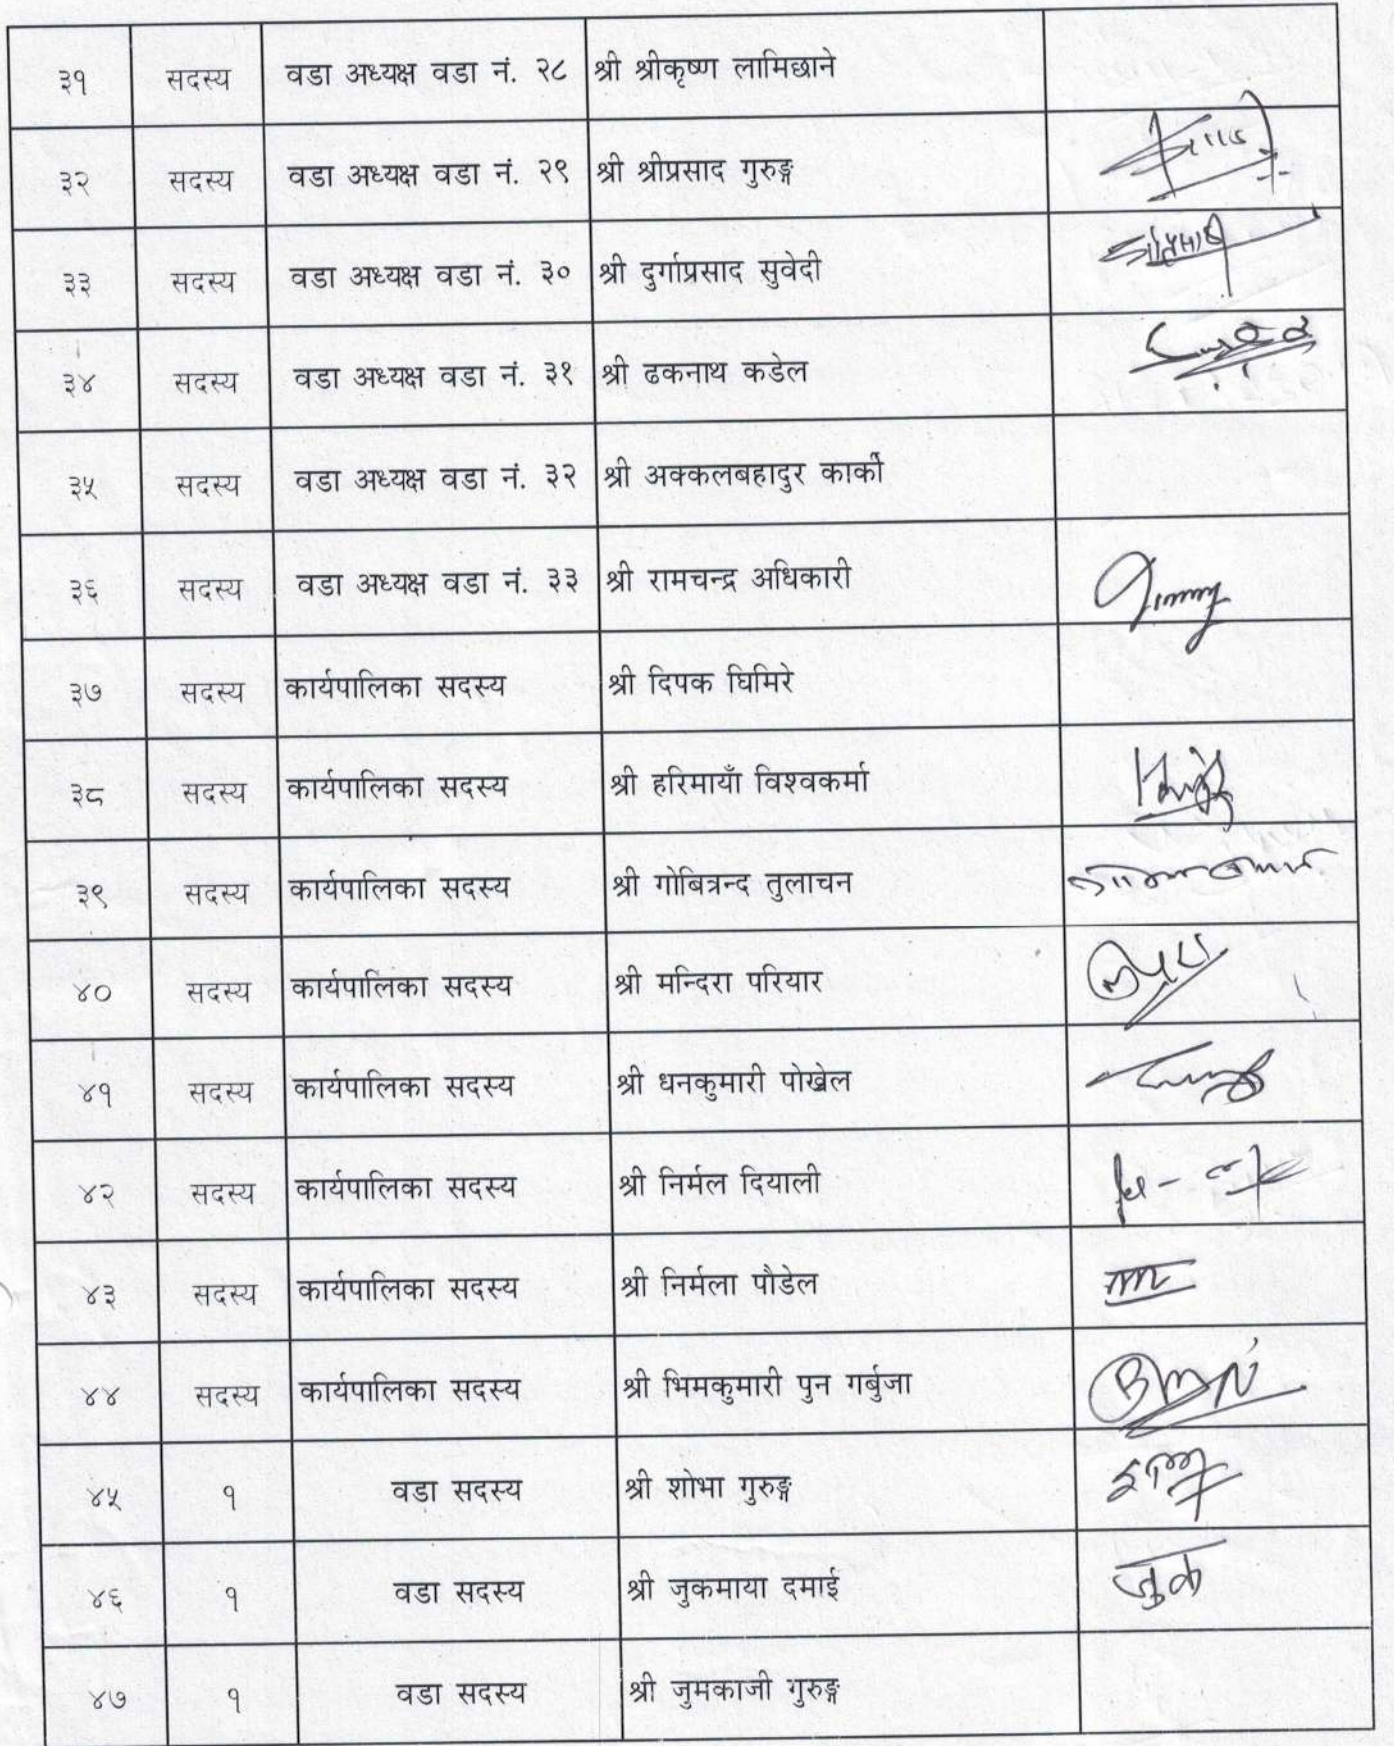 ३१ सदस्य वडा अध्यक्ष वडा नं. २८ श्री श्रीकृष्ण लामिछाने
३२ सदस्य वडा अध्यक्ष वडा नं. २९ श्री श्रीप्रसाद गुरुङ्ग
३३ सदस्य वडा अध्यक्ष वडा नं. ३० श्री दुर्गाप्रसाद सुवेदी
३४ सदस्य वडा अध्यक्ष वडा नं. ३१ श्री ढकनाथ कडेल
३५ सदस्य वडा अध्यक्ष वडा नं. ३२ श्री अक्कलबहादुर कार्की
३६ सदस्य वडा अध्यक्ष वडा नं. ३३ श्री रामचन्द्र अधिकारी
३७ सदस्य कार्यपालिका सदस्य श्री दिपक घिमिरे
३८ सदस्य कार्यपालिका सदस्य श्री हरिमायाँ विश्वकर्मा
३९ सदस्य कार्यपालिका सदस्य श्री गोबित्रन्द तुलाचन
४० सदस्य कार्यपालिका सदस्य श्री मन्दिरा परियार
४१ सदस्य कार्यपालिका सदस्य श्री धनकुमारी पोखेल
४२ सदस्य कार्यपालिका सदस्य श्री निर्मल दियाली
४३ सदस्य कार्यपालिका सदस्य श्री निर्मला पौडेल
४४ सदस्य कार्यपालिका सदस्य श्री भिमकुमारी पुन गर्बुजा
४५ १ वडा सदस्य श्री शोभा गुरुङ्ग
४६ १ वडा सदस्य श्री जुकमाया दमाई जुक
४७ १ वडा सदस्य श्री जुमकाजी गुरुङ्ग